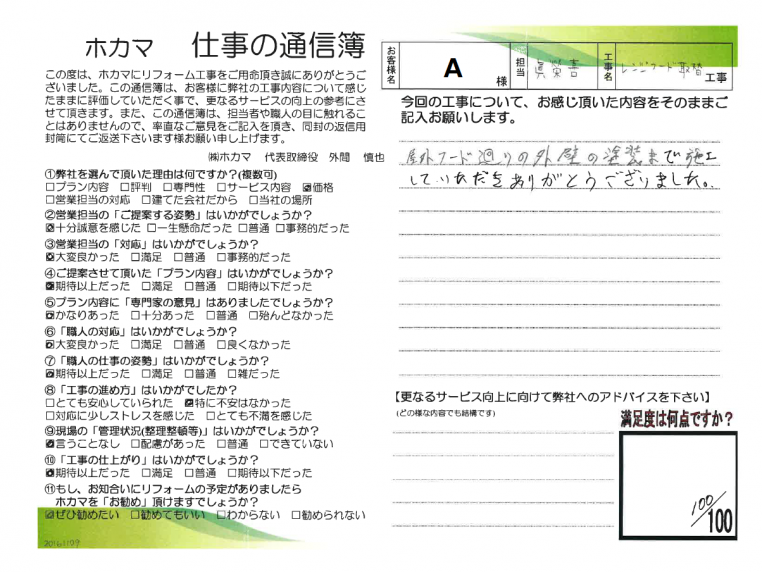 ホカマ 仕事の通信簿
この度は、ホカマにリフォーム工事をご用命頂き誠にありがとうご
ざいました。この通信簿は、お客様に弊社の工事内容について感じ
たままに評価していただく事で、更なるサービスの向上の参考にさ
せて頂きます。また、この通信簿は、担当者や職人の目に触れるこ
とはありませんので、率直なご意見をご記入を頂き、同封の返信用
封筒にてご返送下さいます様お願い申し上げます。
㈱ホカマ 代表取締役 外間 慎也
①弊社を選んで頂いた理由は何ですか?(複数可)
□プラン内容 □評判 □専門性 □サービス内容 ☑価格
□営業担当の対応 □建てた会社だから □当社の場所
②営業担当の「ご提案する姿勢」はいかがでしょうか?
☑十分誠意を感じた □一生懸命だった □普通 □事務的だった
③営業担当の「対応」はいかがでしょうか?
☑大変良かった □満足 □普通 □事務的だった
④ご提案させて頂いた「プラン内容」はいかがでしょうか?
☑期待以上だった □満足 □普通 □期待以下だった
⑤プラン内容に「専門家の意見」はありましたでしょうか?
☑かなりあった □十分あった □普通 □殆んどなかった
⑥「職人の対応」はいかがでしょうか?
☑大変良かった □満足 □普通 □良くなかった
⑦「職人の仕事の姿勢」はいかがでしょうか?
☑期待以上だった □満足 □普通 □雑だった
⑧「工事の進め方」はいかがでしたか?
□とても安心していられた ☑特に不安はなかった
□対応に少しストレスを感じた □とても不満を感じた
⑨現場の「管理状況(整理整頓等)」はいかがでしょうか?
☑言うことなし □配慮があった □普通 □できていない
⑩「工事の仕上がり」はいかがでしょうか?
☑期待以上だった □満足 □普通 □期待以下だった
⑪もし、お知合いにリフォームの予定がありましたら
ホカマを「お勧め」頂けますでしょうか?
☑ぜひ勧めたい □勧めてもいい □わからない □勧められない
お客様名 A 様 担当 工事名 レンジフード取替 工事
今回の工事について、お感じ頂いた内容をそのままご
記入お願いします。
屋外フード廻りの外壁の塗装まで施工
していただきありがとうございました。
【更なるサービス向上に向けて弊社へのアドバイスを下さい】
(どの様な内容でも結構です)
満足度は何点ですか?
100/100